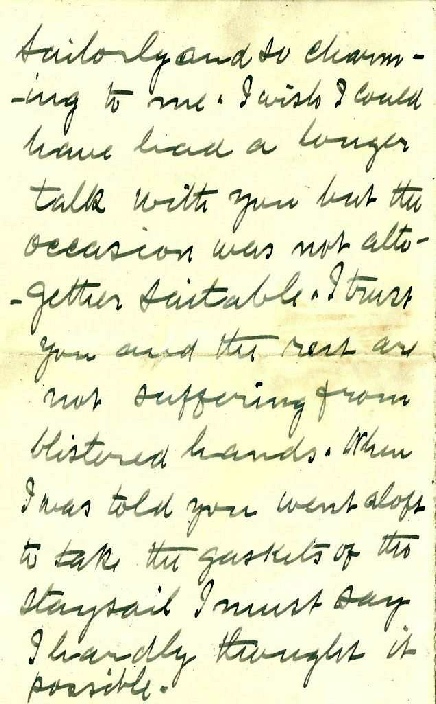 sailorly and so charm-
-ing to me. I wish I could
have had a longer
talk with you but the
occasion was not alto-
-gether suitable. I trust
you and the rest are
not suffering from
blistered hands. When
I was told you went aloft
to take the gaskets of the
staysail I must say
I hardly thought it
possible.